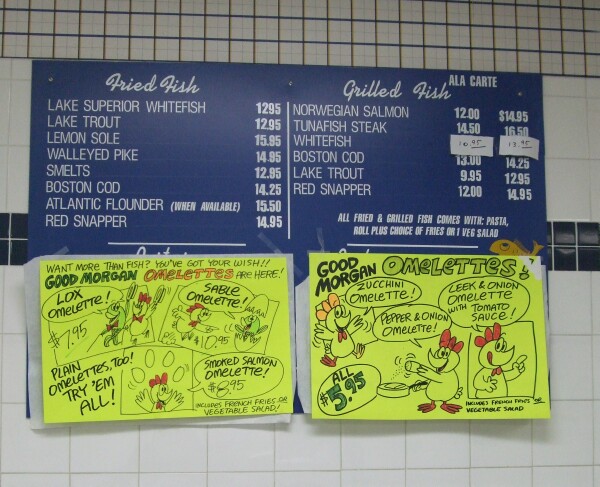 Fried Fish
LAKE SUPERIOR WHITEFISH 1295
LAKE TROUT 12.95
LEMON SOLE 15.95
WALLEYED PIKE 14.95
SMELTS 12.95
BOSTON COD 14.25
ATLANTIC FLOUNDER (WHEN AVAILABLE) 15.50
RED SNAPPER 14.95
Grilled Fish ALA CARTE
NORWEGIAN SALMON 12.00 $14.95
TUNAFISH STEAK 14.50 16.50
WHITEFISH 10.95 13.95
BOSTON COD 13.00 14.25
LAKE TROUT 9.95 12.95
RED SNAPPER 12.00 14.95
ALL FRIED & GRILLED FISH COMES WITH: PASTA,
ROLL PLUS CHOICE OF FRIES OR 1 VEG SALAD
WANT MORE THAN FISH? YOU'VE GOT YOUR WISH!!
GOOD MORGAN OMELETTES ARE HERE!
LOX
OMELETTE!
$7.95
SABLE
OMELETTE!
$10.95
PLAIN
OMELETTES, TOO!
TRY 'EM
ALL!
SMOKED SALMON
OMELETTE!
$8.95
INCLUDES FRENCH FRIES OR
VEGETABLE SALAD!
GOOD
MORGAN
OMELETTES!
ZUCCHINI
OMELETTE!
PEPPER & ONION
OMELETTE!
LEEK & ONION
OMELETTE
WITH TOMATO
SAUCE!
ALL
$5.95
INCLUDES FRENCH FRIES OR
VEGETABLE SALAD